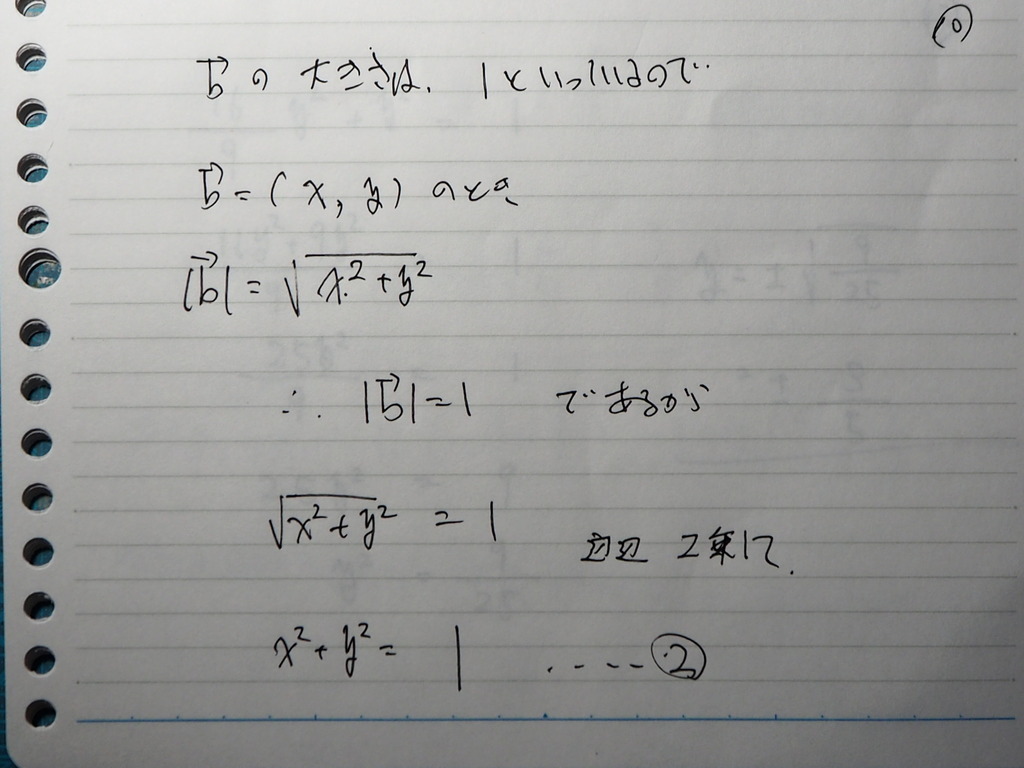 ⑩
b⃗ の 大きさは、1といっているので
b⃗ = (x, y) のとき
|b⃗| = √(x² + y²)
∴ |b⃗| = 1 であるから
√(x² + y²) = 1
辺辺 2乗して.
x² + y² = 1 ..... ②